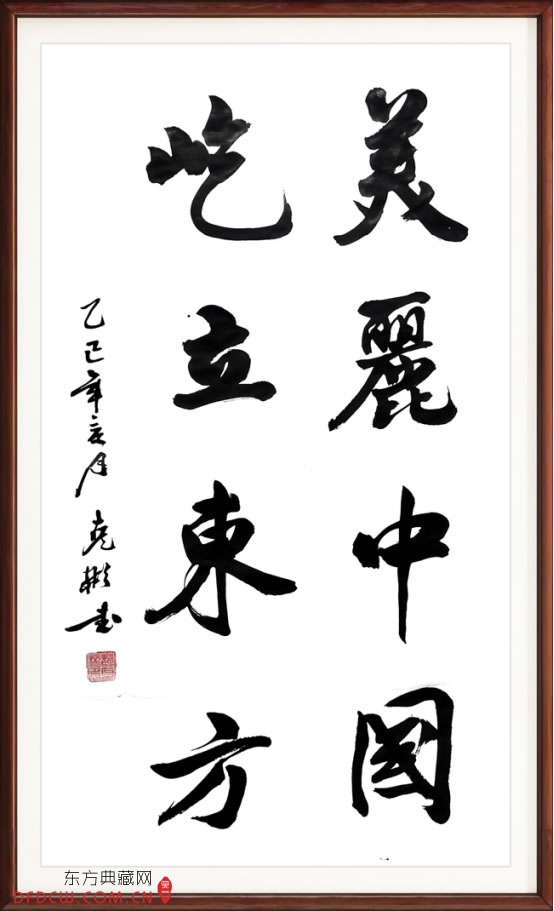 美麗中國
屹立東方
乙巳年亥月 堯彬書
东方典藏网
DFDCW.COM.CN